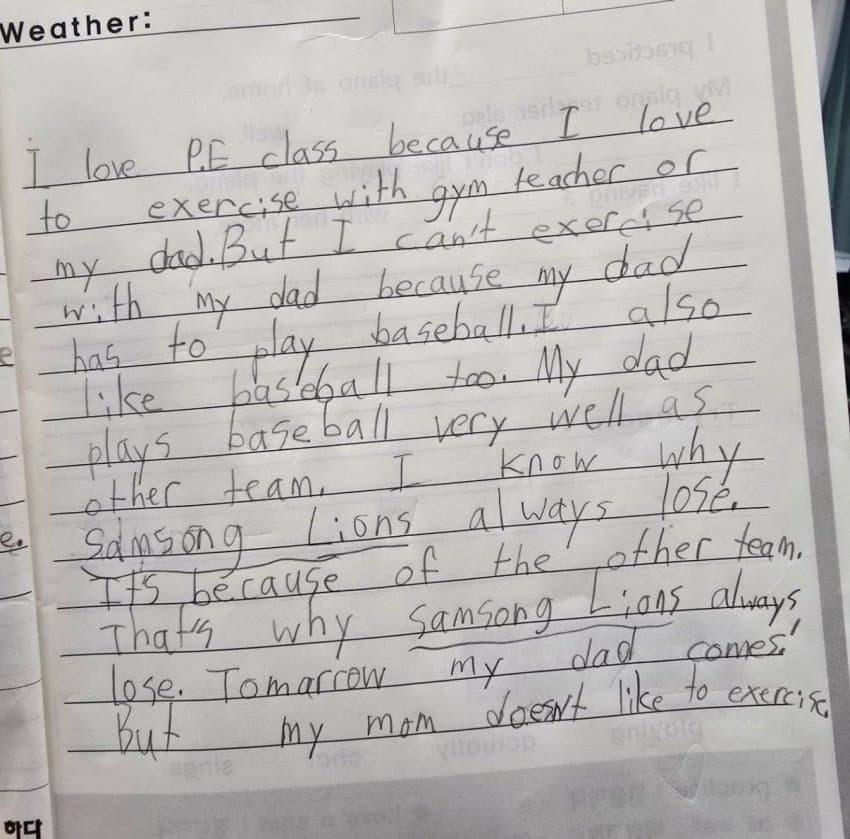 Weather:
I love P.E class because I love
to exercise with gym teacher or
my dad. But I can't exercise
with my dad because my dad
has to play baseball. I also
like baseball too. My dad
plays baseball very well as
other team. I know why
Samsong Lions always lose.
It's because of the other team.
That's why Samsong Lions always
lose. Tomarrow my dad comes!
But my mom doesn't like to exercise.
하다